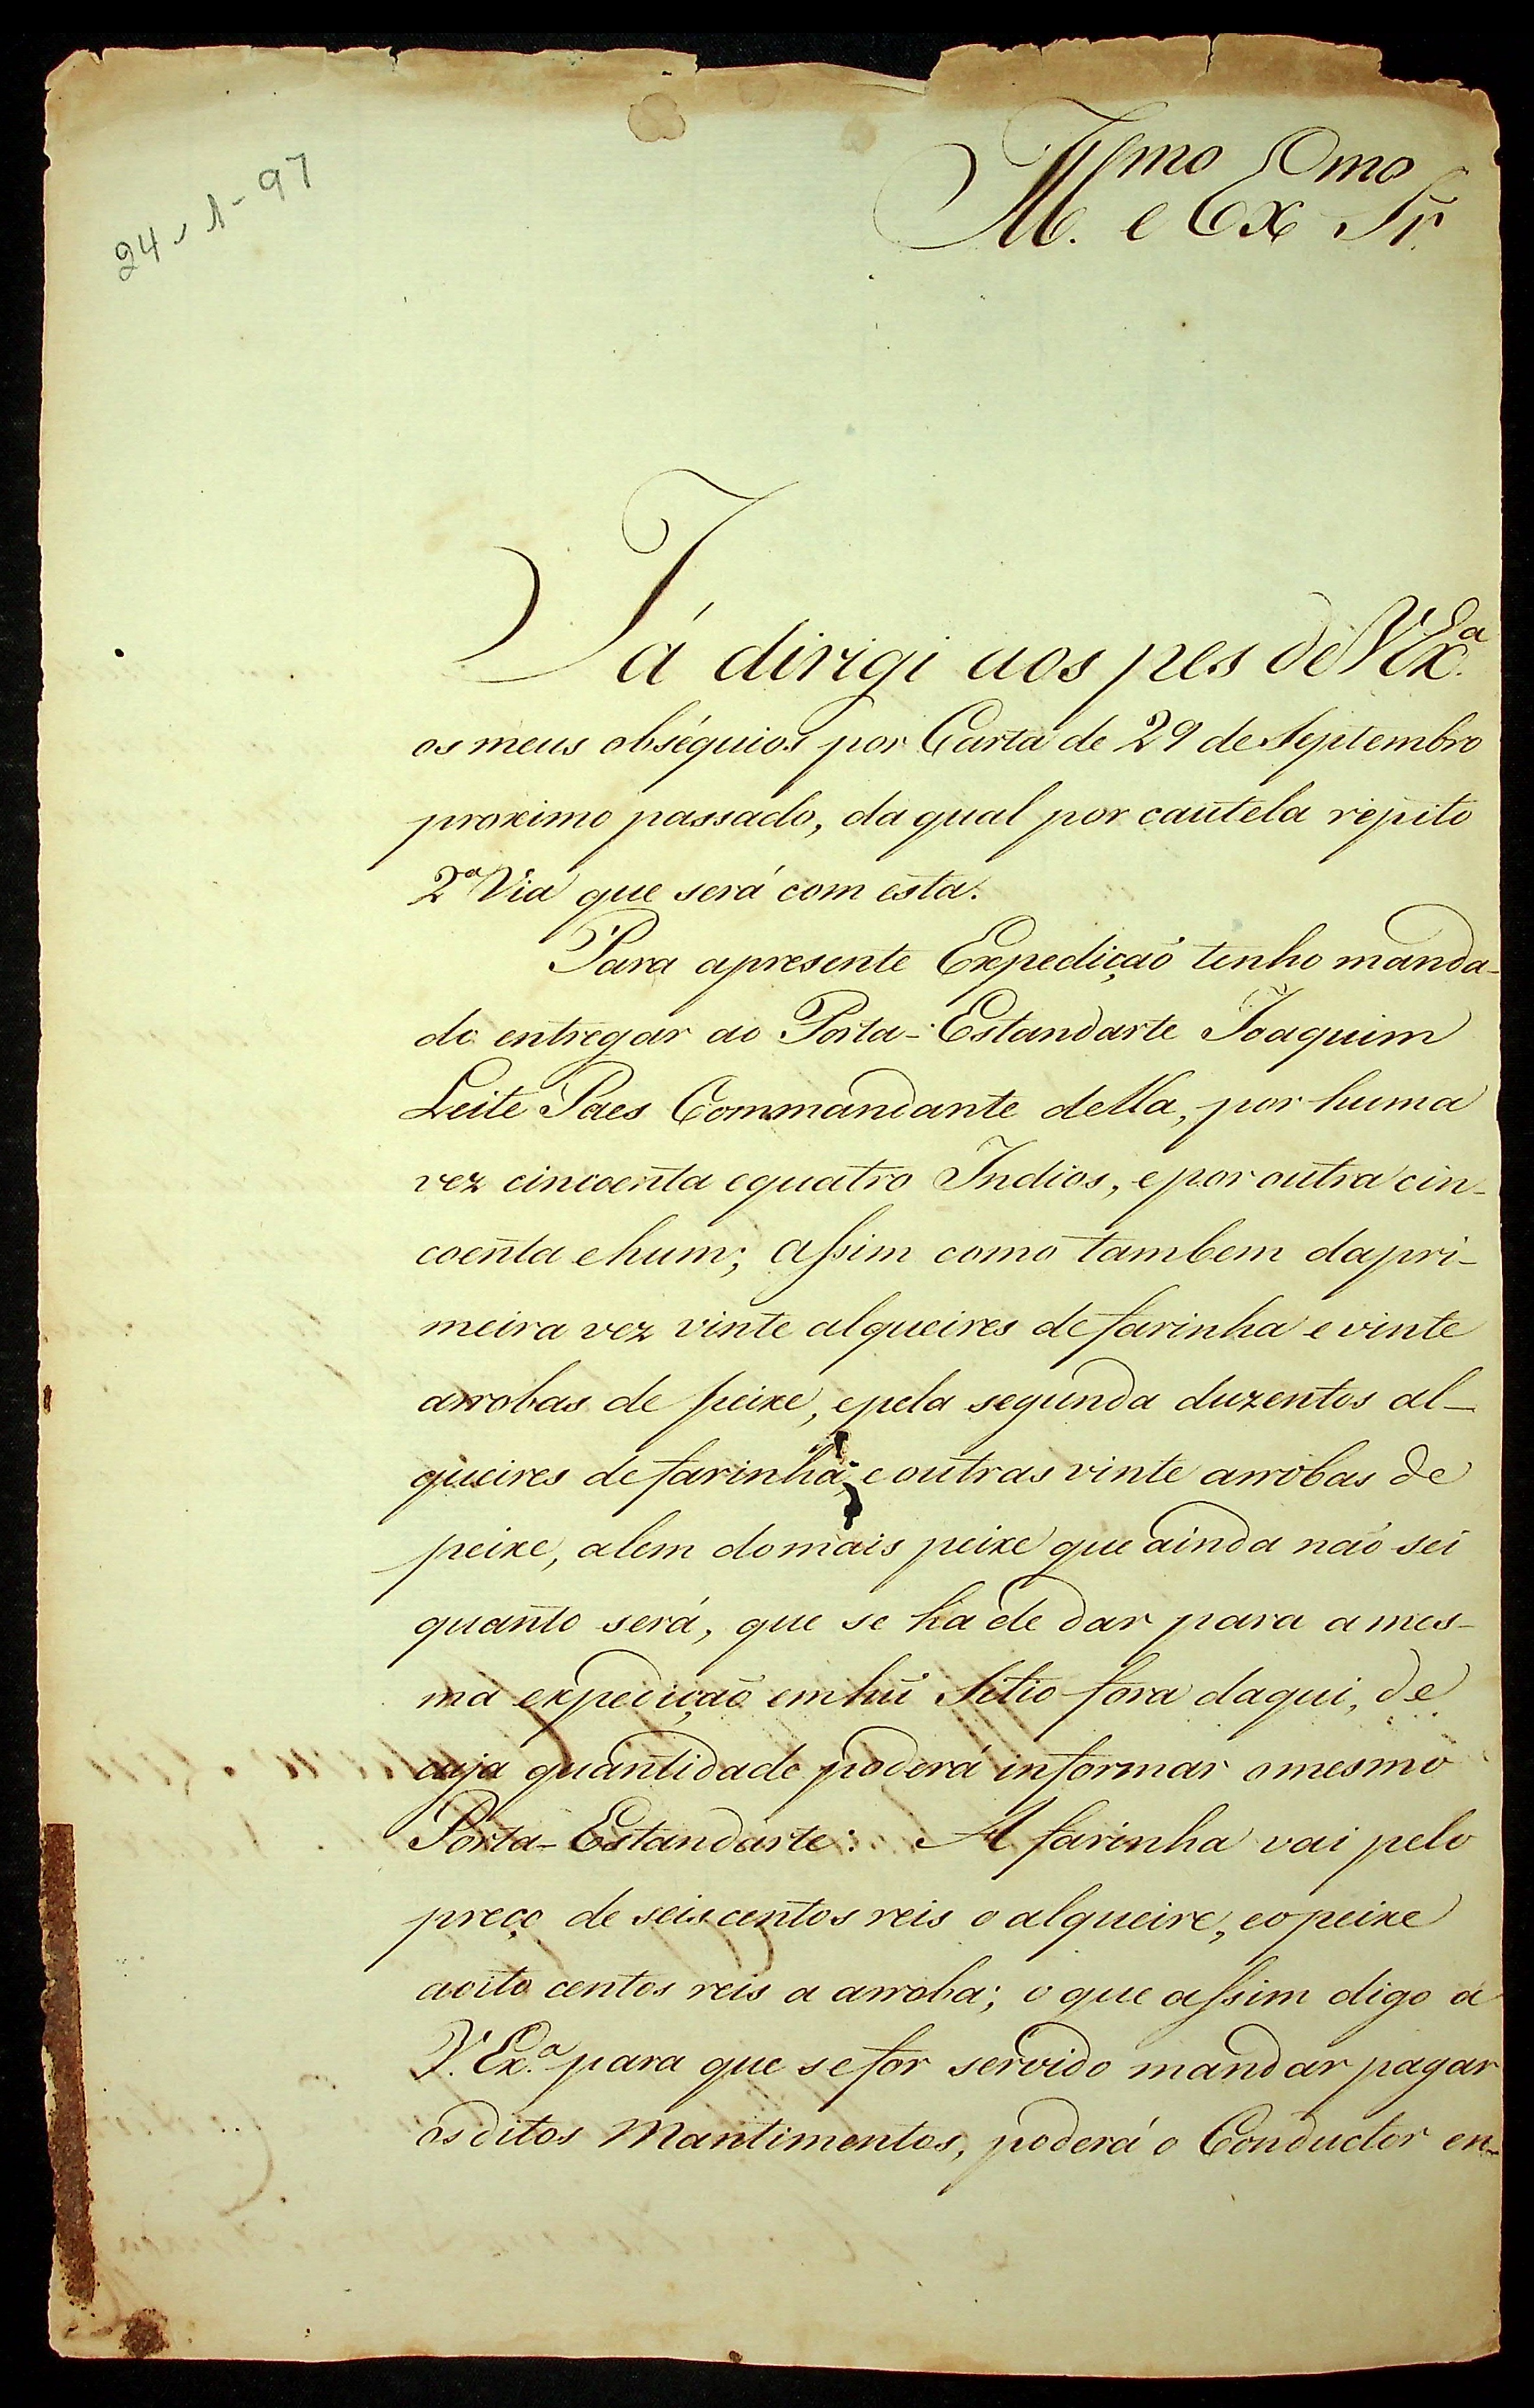 24-1-97
Ill.mo e Ex.mo Sr.
Já dirigi aos pes de V Ex.ª
os meus obséquios por Carta de 29 de Septembro
proximo passado, da qual por cautela repito
2ª Via que será com esta.
Para apresente Expedição tenho manda-
do entregar ao Porta-Estandarte Joaquim
Leite Paes Commandante della, por huma
vez cincoenta equatro Indios, epor outra cin-
coenta ehum; assim como tambem dapri-
meira vez vinte alqueires defarinha e vinte
arrobas de peixe, epela segunda duzentos al-
queires defarinha, e outras vinte arrobas de
peixe, alem domais peixe que ainda não sei
quanto será, que se ha de dar para a mes-
ma expedição emhũ Sitio fora daqui, de
cuja quantidade poderá informar omesmo
Porta-Estandarte: A farinha vai pelo
preço de seiscentos reis o alqueire, eopeixe
aoito centos reis a arroba; o que assim digo a
V. Ex.ª para que sefor servido mandar pagar
os ditos Mantimentos, poderá o Conductor en-